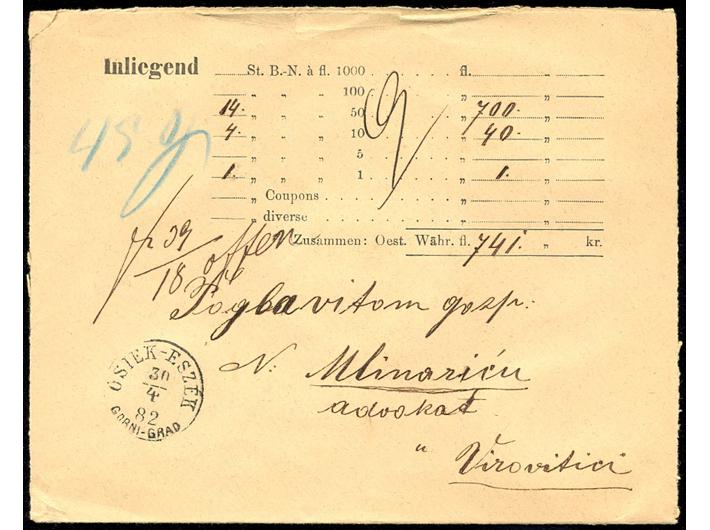 Inliegend St. B.-N. à fl. 1000 fl. „
„ „ „ 100 „ „
14. „ „ „ 50 „ 700. „
4. „ „ „ 10 „ 40. „
„ „ „ 5 „ „
1. „ „ „ 1 „ 1. „
„ Coupons „ „
„ diverse „ „
Zusammen: Oest. Währ. fl. 741. „ kr.
45 g
39
18 offen
Poglavitom gosp:
N: Mlinariću
advokat
" Virovitici
OSIEK-ESZÉK
30
4
82
GORNI-GRAD